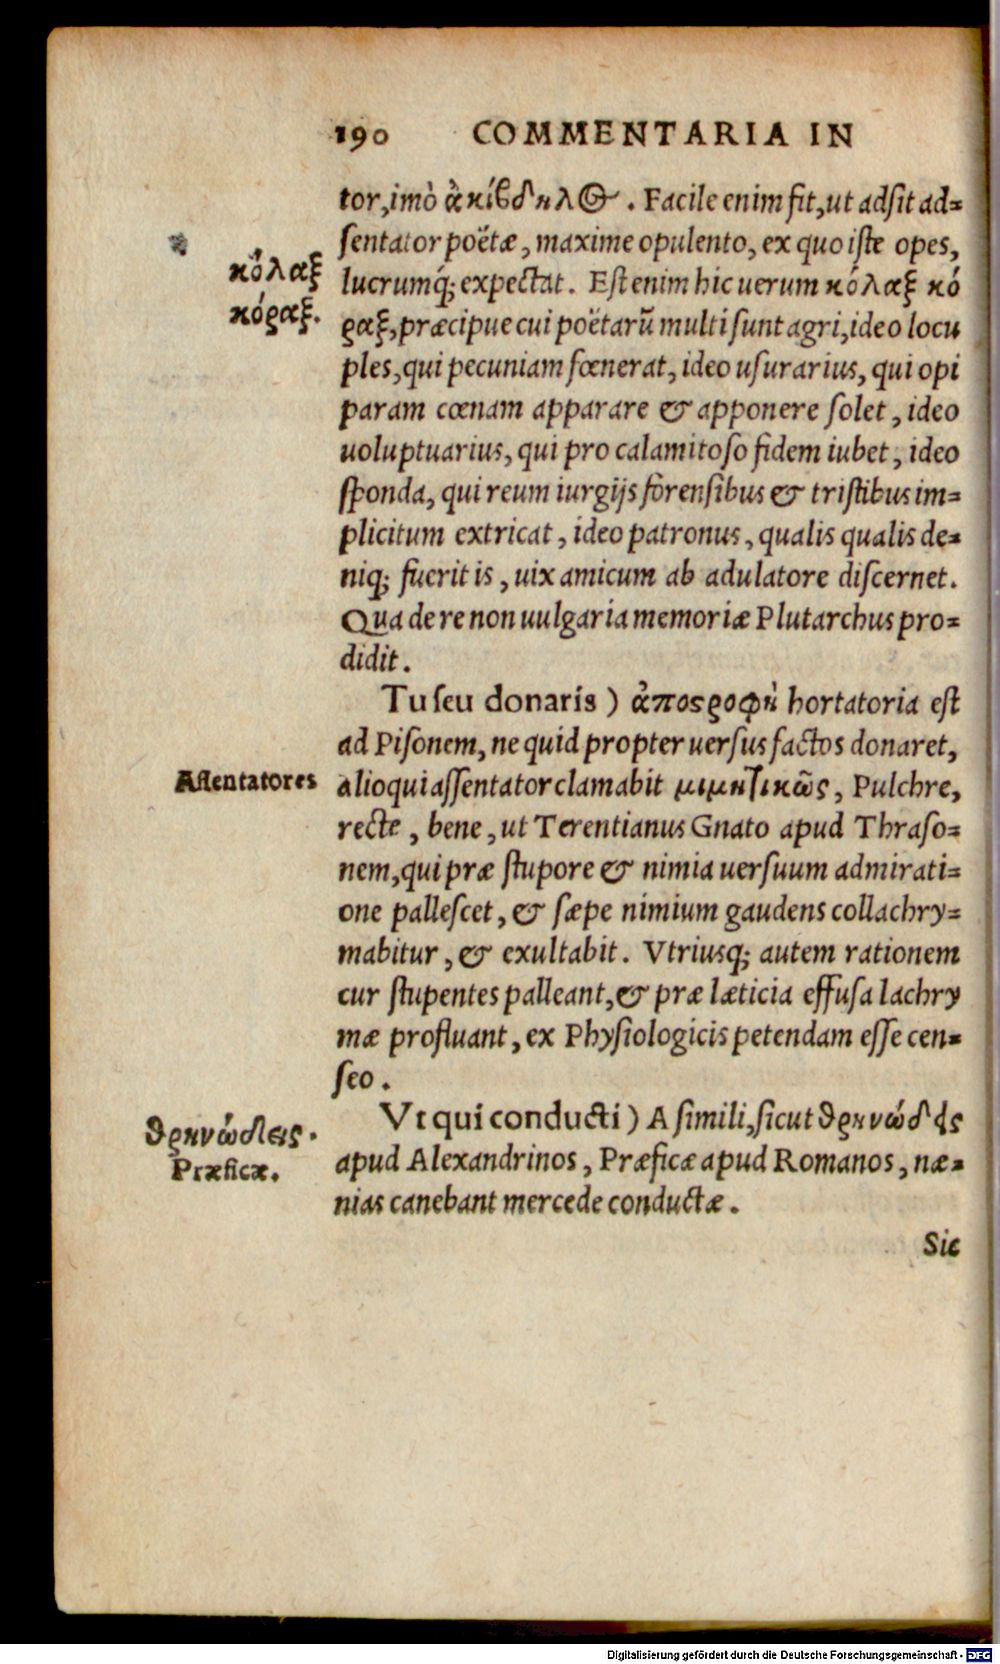 190 COMMENTARIA IN
tor, imò ἀκίβδηλος. Facile enim fit, ut adsit ad=
sentator poëtæ, maxime opulento, ex quo iste opes,
κόλαξ
κόραξ.
lucrumq́; expectat. Est enim hic uerum κόλαξ κό
ραξ, præcipue cui poëtarũ multi sunt agri, ideo locu
ples, qui pecuniam fœnerat, ideo usurarius, qui opi
param cœnam apparare & apponere solet, ideo
uoluptuarius, qui pro calamitoso fidem iubet, ideo
sponda, qui reum iurgijs forensibus & tristibus im=
plicitum extricat, ideo patronus, qualis qualis de=
niq; fuerit is, uix amicum ab adulatore discernet.
Qua de re non uulgaria memoriæ Plutarchus pro=
didit.
Tu seu donaris) ἀποστροφὴ hortatoria est
ad Pisonem, ne quid propter uersus factos donaret,
Assentatores
alioqui assentator clamabit μιμητικῶς, Pulchre,
recte, bene, ut Terentianus Gnato apud Thraso=
nem, qui præ stupore & nimia uersuum admirati=
one pallescet, & sæpe nimium gaudens collachry=
mabitur, & exultabit. Vtriusq; autem rationem
cur stupentes palleant, & præ læticia effusa lachry
mæ profluant, ex Physiologicis petendam esse cen=
seo.
θρηνώδεις.
Præficæ.
Vt qui conducti) A simili, sicut θρηνώδεις
apud Alexandrinos, Præficæ apud Romanos, næ=
nias canebant mercede conductæ.
Sic
Digitalisierung gefördert durch die Deutsche Forschungsgemeinschaft - DFG